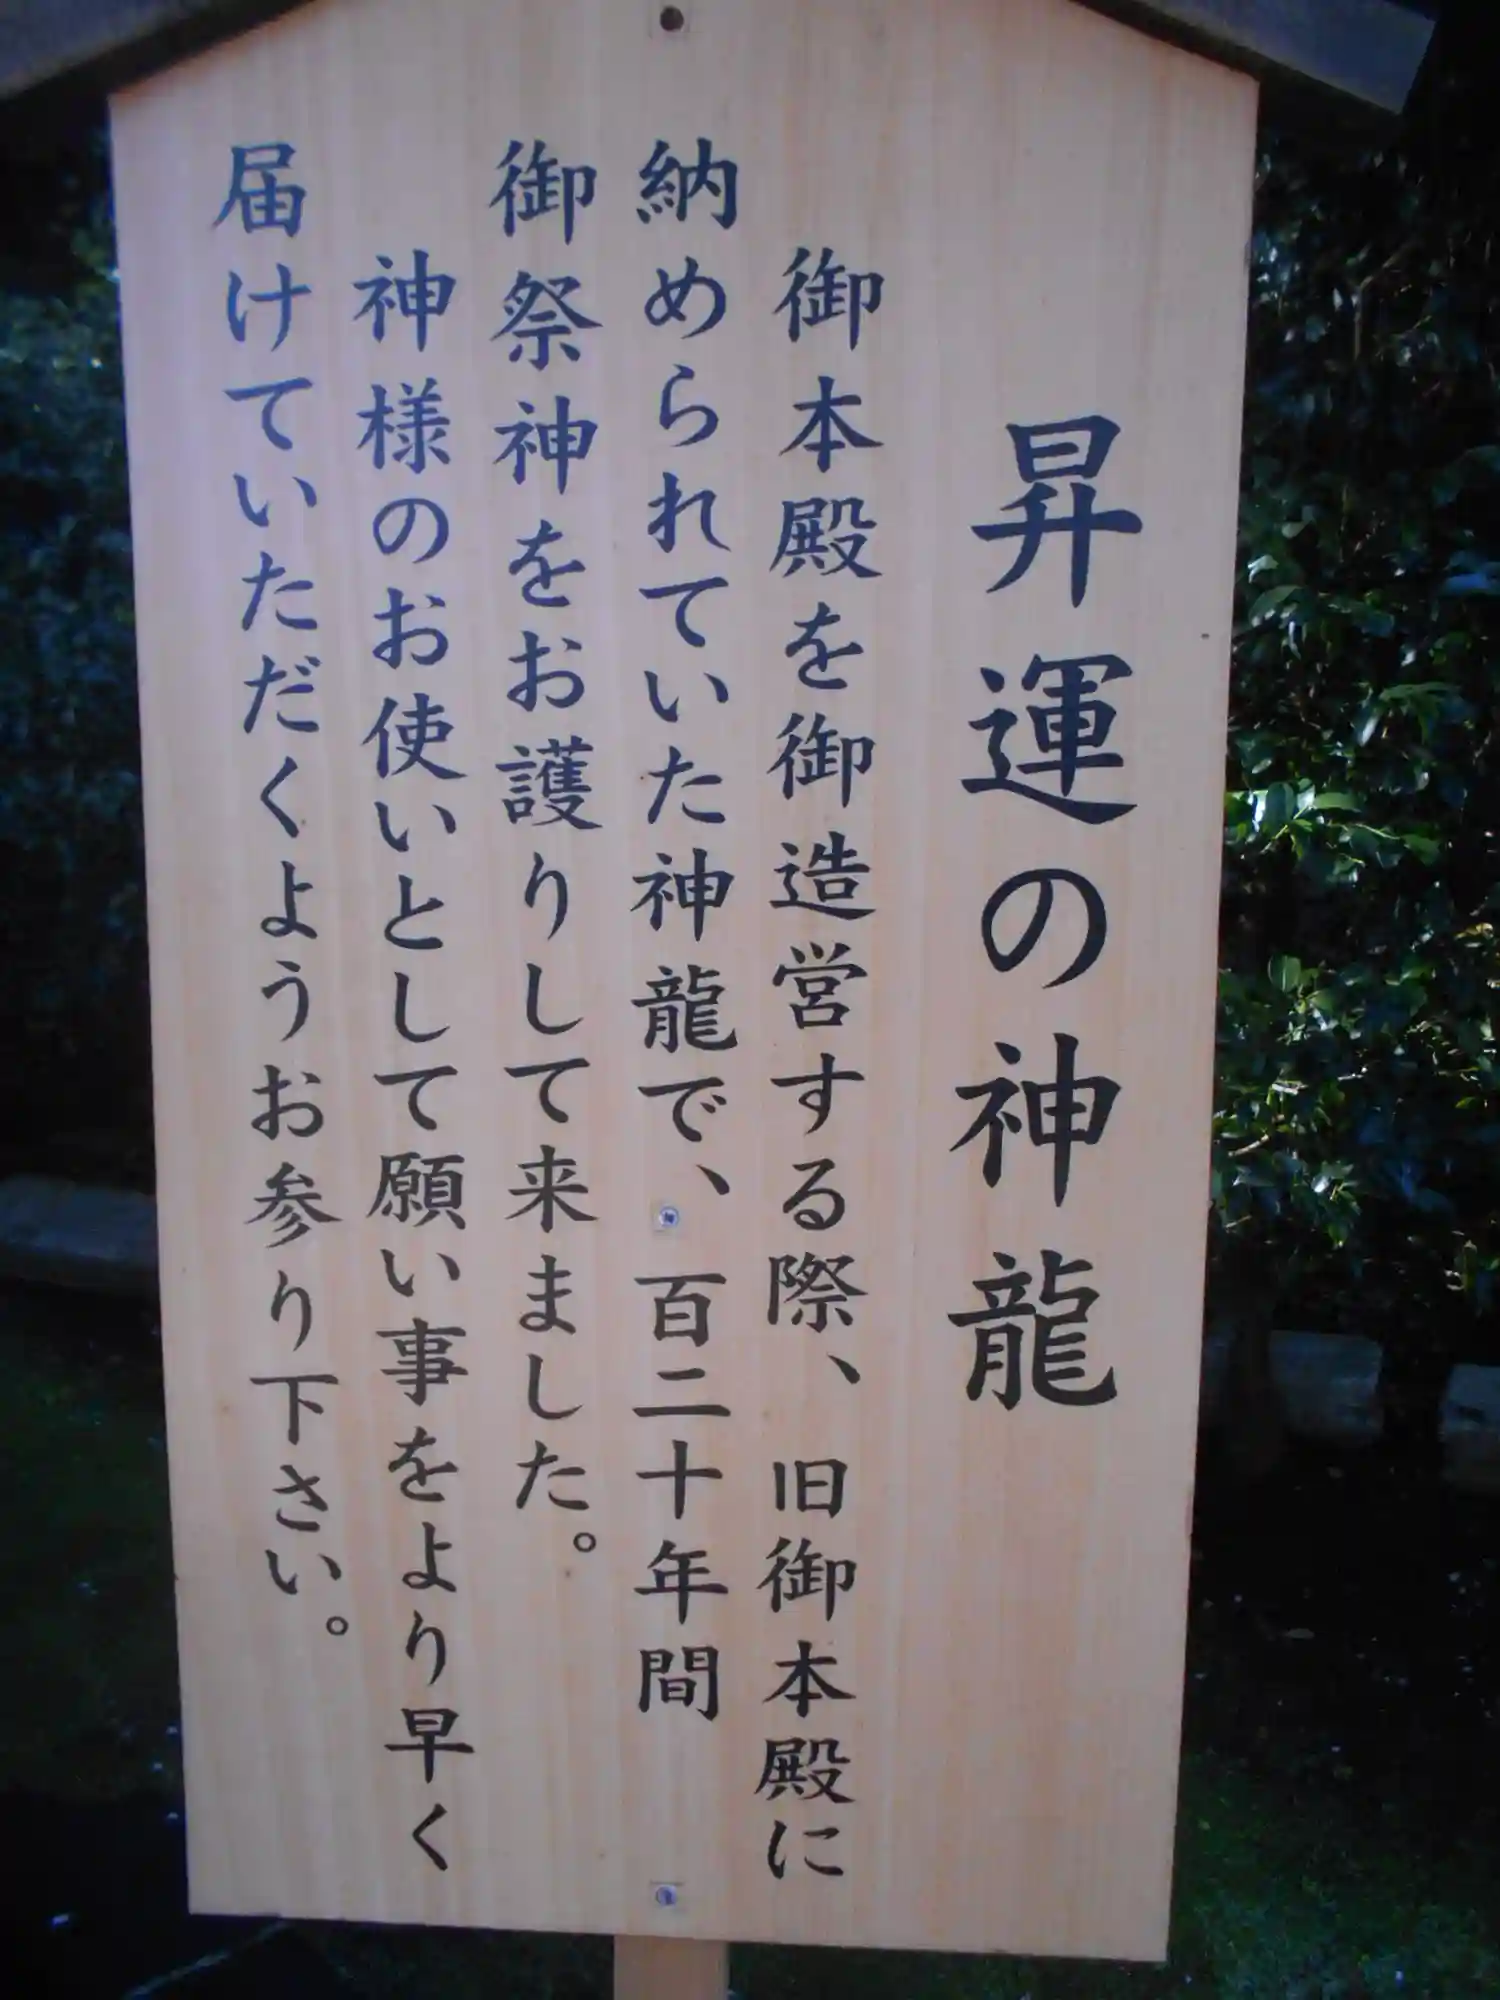 昇運の神龍
御本殿を御造営する際、旧御本殿に
納められていた神龍で、百二十年間
御祭神をお護りして来ました。
神様のお使いとして願い事をより早く
届けていただくようお参り下さい。